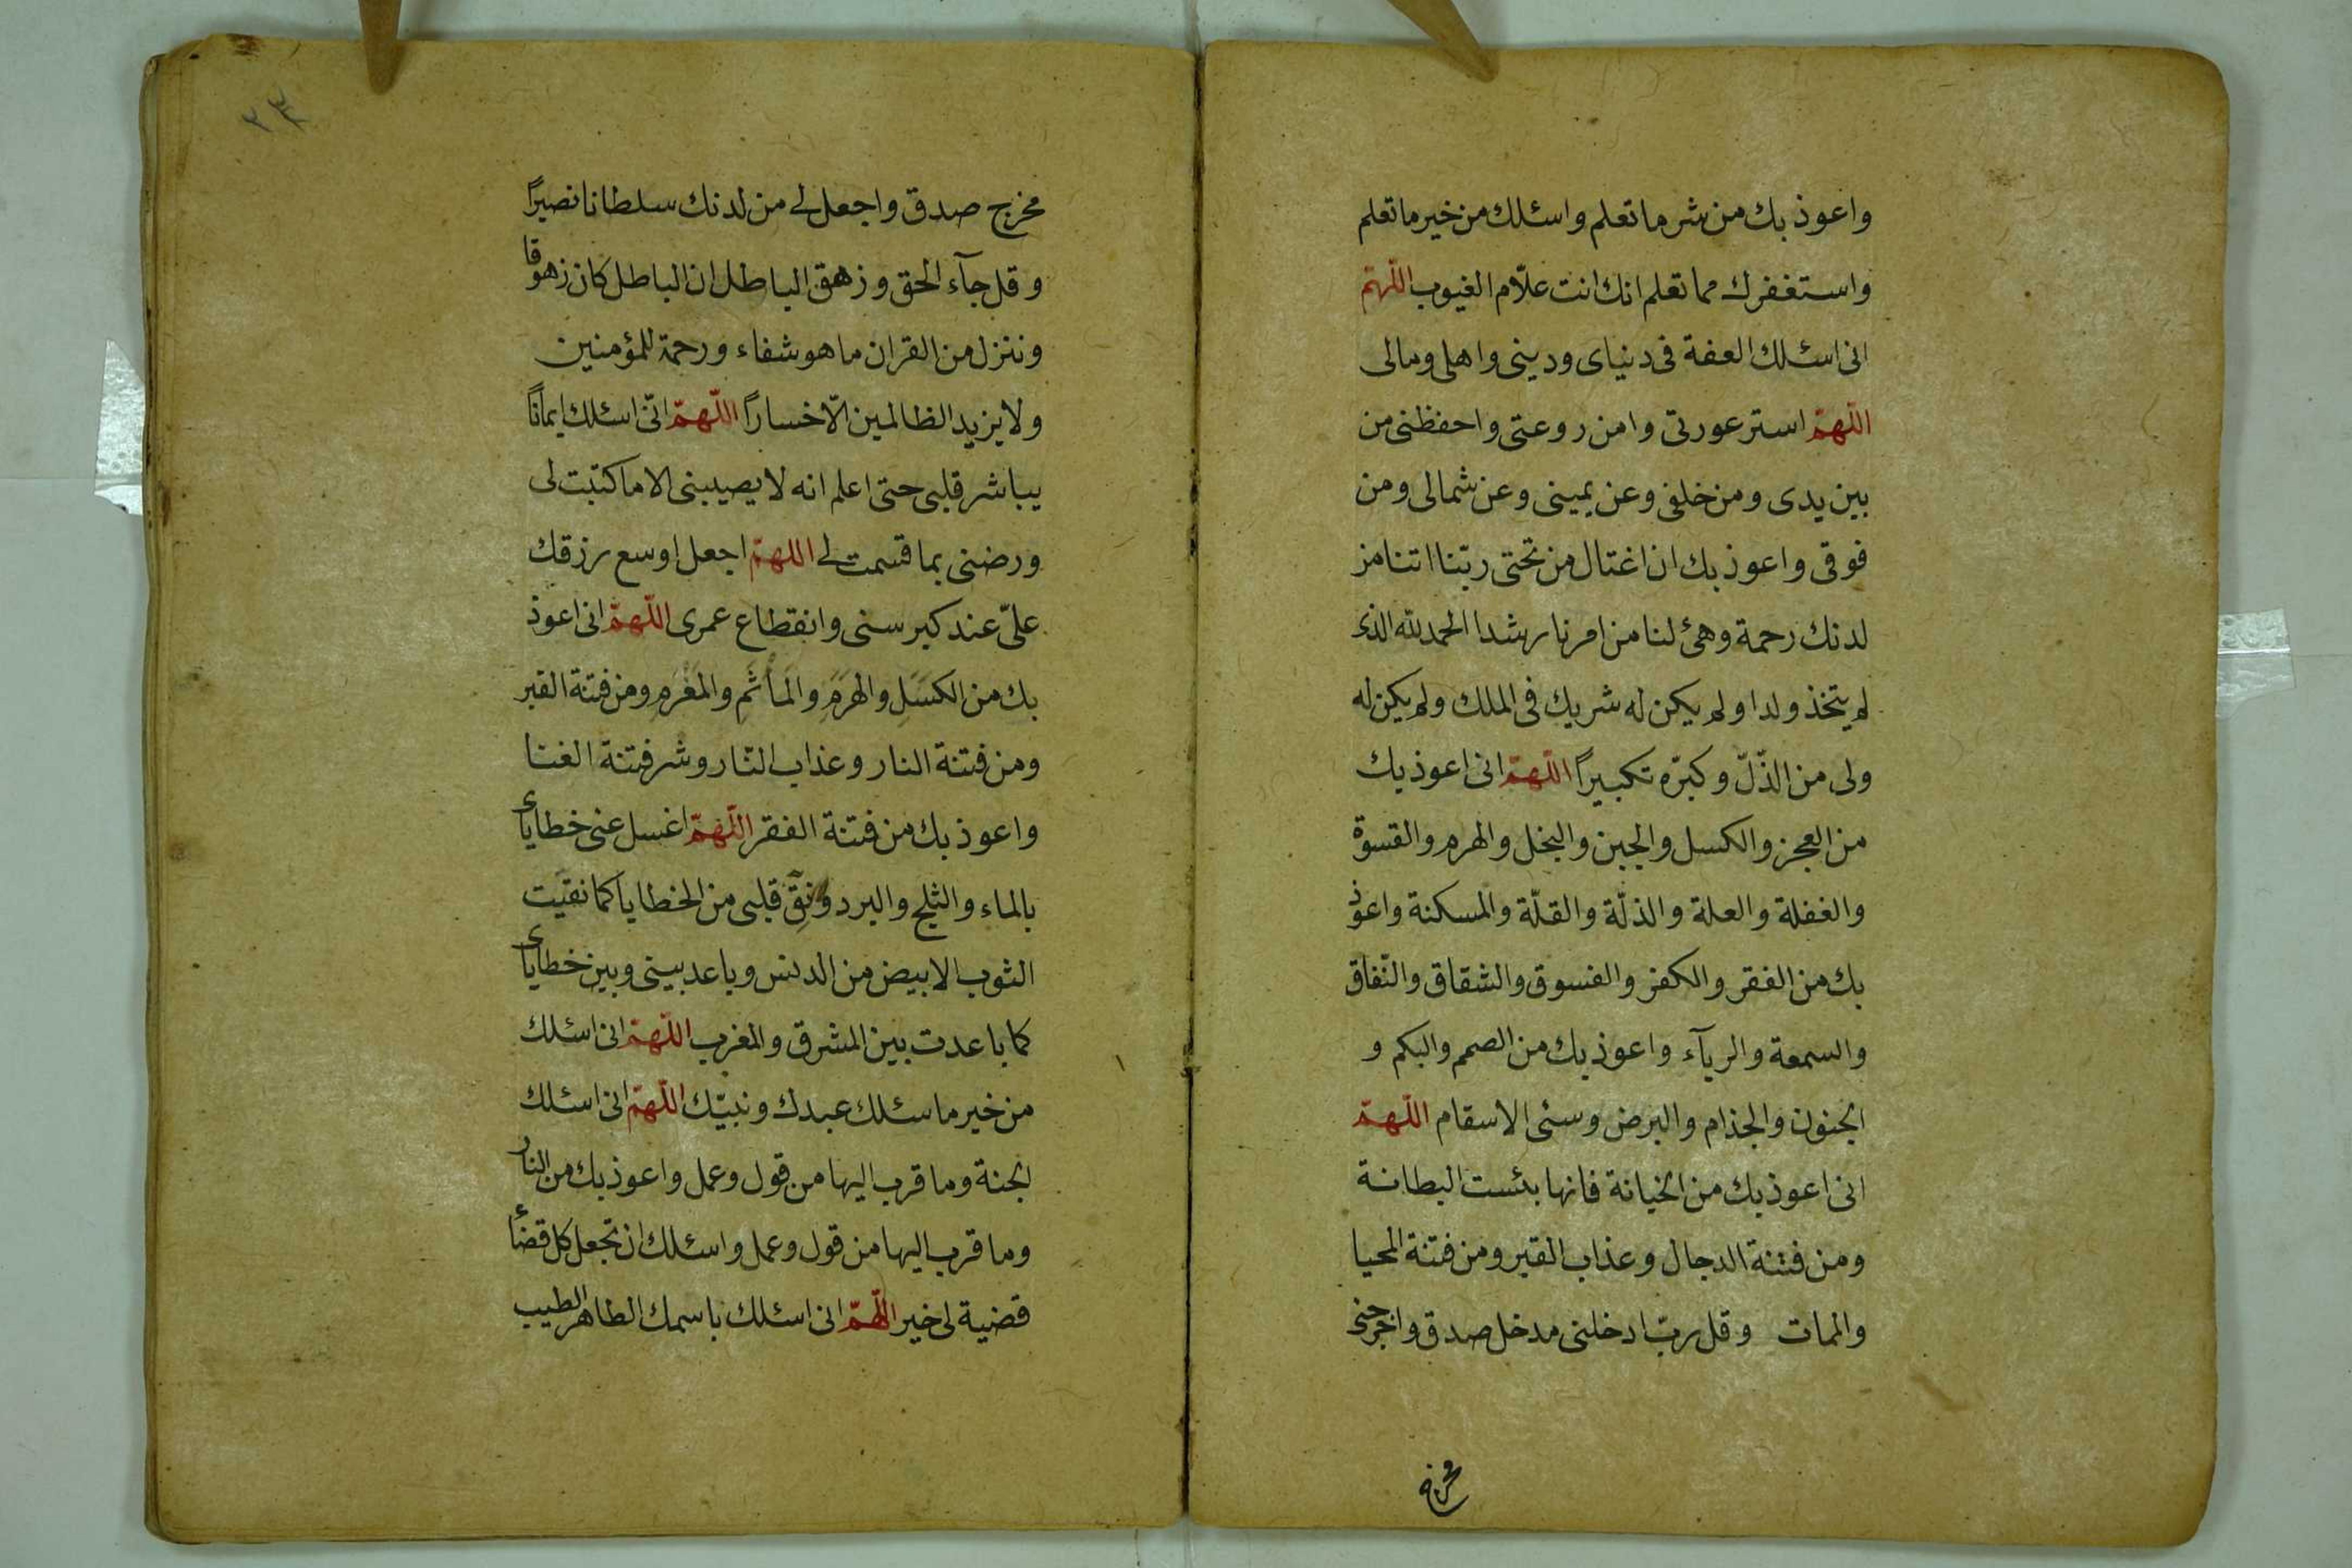 واعوذ بك من شر ما تعلم واسئلك من خير ما تعلم
واستغفرك مما تعلم انك انت علّام الغيوب اللّهمّ
انى اسئلك العفة فى دنياى ودينى واهلى ومالى
اللّهمّ استر عورتى وامن روعتى واحفظنى من
بين يدى ومن خلفى وعن يمينى وعن شمالى ومن
فوقى واعوذ بك ان اغتال من تحتى ربّنا اتنا من
لدنك رحمة وهئ لنا من امرنا رشدا الحمد لله الذى
لم يتخذ ولدا ولم يكن له شريك فى الملك ولم يكن له
ولى من الذّلّ وكبرّه تكبيراً اللّهمّ انى اعوذ بك
من العجز والكسل والجبن والبخل والهرم والقسوة
والغفلة والعلة والذلّة والقلّة والمسكنة واعوذ
بك من الفقر والكفر والفسوق والشقاق والنّفاق
والسمعة والريآء واعوذ بك من الصمم والبكم و
الجنون والجذام والبرص وسئى الاسقام اللّهمّ
انى اعوذ بك من الخيانة فانها بئست البطانة
ومن فتنة الدجال وعذاب القبر ومن فتنة المحيا
والممات وقل ربّ ادخلنى مدخل صدق واخرجنى
مخرج
٢٣
مخرج صدق واجعل لى من لدنك سلطانا نصيراً
وقل جآء الحق وزهق الباطل ان الباطل كان زهوقا
وننزل من القران ما هو شفاء ورحمة للمؤمنين
ولا يزيد الظالمين الّا خساراً اللّهمّ انّى اسئلك ايماناً
يباشر قلبى حتى اعلم انه لا يصيبنى الا ما كتبت لى
ورضنى بما قسمت لى اللهمّ اجعل اوسع رزقك
علىّ عند كبر سنى وانقطاع عمرى اللّهمّ انى اعوذ
بك من الكسَلِ والهرَمِ والمَأْثَمِ والمَغْرَمِ ومن فتنة القبر
ومن فتنة النار وعذاب النّار وشر فتنة الغنا
واعوذ بك من فتنة الفقر اللّهمّ اغسل عنى خطاياى
بالماء والثلج والبرد ونقِّ قلبى من الخطايا كما نقيت
الثوب الابيض من الدنس وباعد بينى وبين خطاياى
كما باعدت بين المشرق والمغرب اللّهمّ انى اسئلك
من خير ما سئلك عبدك ونبيّك اللّهمّ انى اسئلك
الجنة وما قرب اليها من قول وعمل واعوذ بك من النار
وما قرب اليها من قول وعمل واسئلك ان تجعل كل قضاء
قضية لى خير اللّهمّ انى اسئلك باسمك الطاهر الطيب